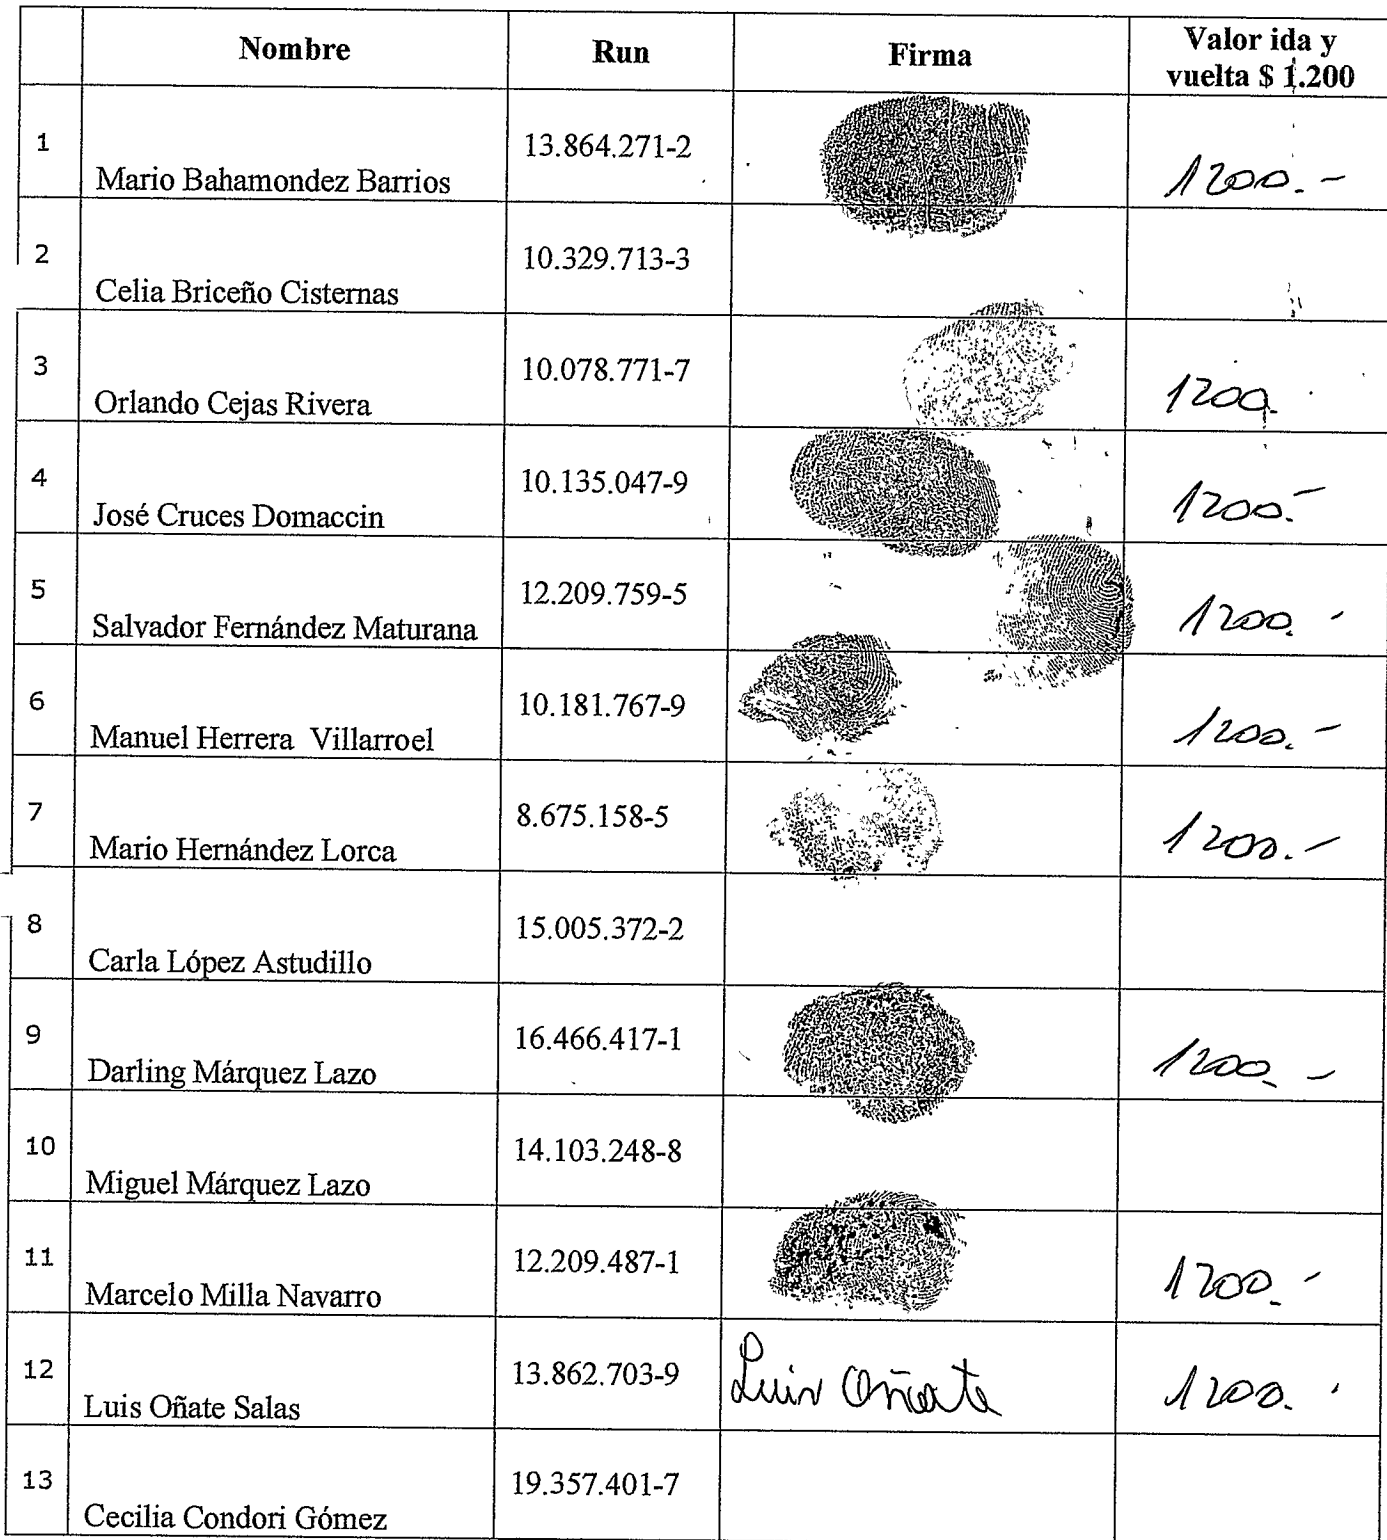 Nombre Run Firma Valor ida y
vuelta $ 1.200
1 Mario Bahamondez Barrios 13.864.271-2 1200.-
2 Celia Briceño Cisternas 10.329.713-3
3 Orlando Cejas Rivera 10.078.771-7 1200.
4 José Cruces Domaccin 10.135.047-9 1200.-
5 Salvador Fernández Maturana 12.209.759-5 1200.-
6 Manuel Herrera Villarroel 10.181.767-9 1200.-
7 Mario Hernández Lorca 8.675.158-5 1200.-
8 Carla López Astudillo 15.005.372-2
9 Darling Márquez Lazo 16.466.417-1 1200.-
10 Miguel Márquez Lazo 14.103.248-8
11 Marcelo Milla Navarro 12.209.487-1 1200.-
12 Luis Oñate Salas 13.862.703-9 Luis Oñate 1200.-
13 Cecilia Condori Gómez 19.357.401-7